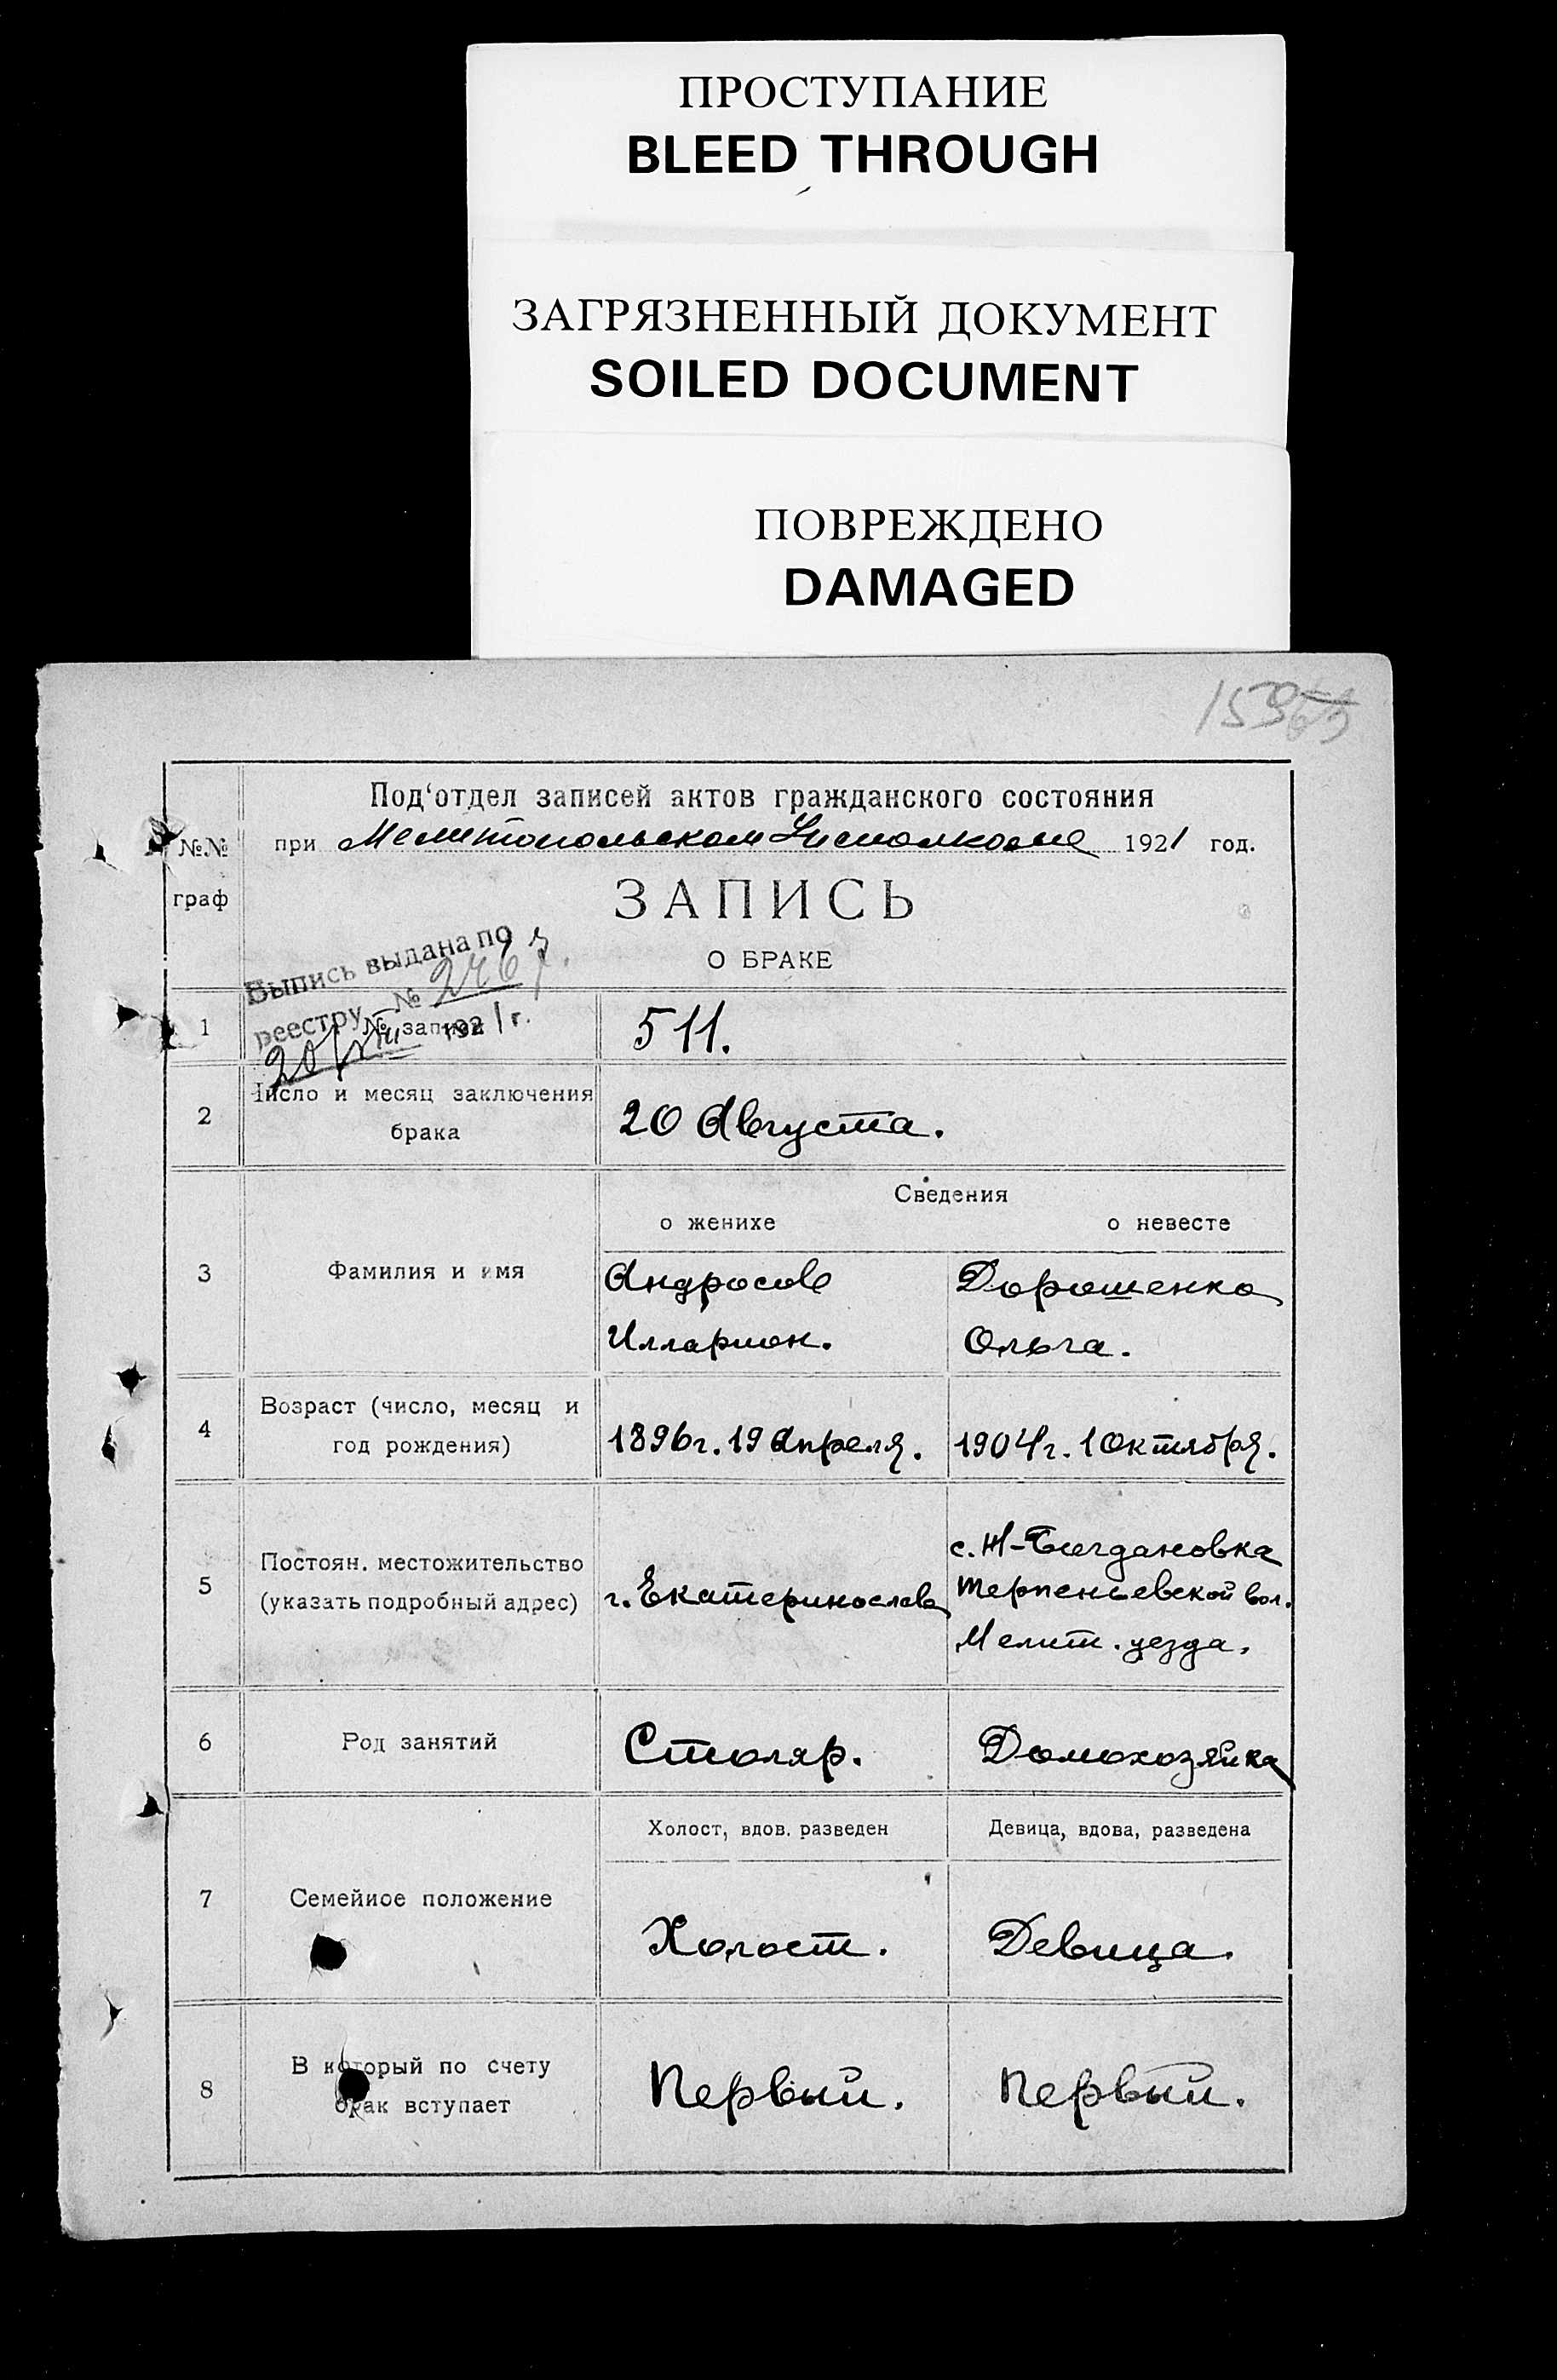 ПРОСТУПАНИЕ
BLEED THROUGH
ЗАГРЯЗНЕННЫЙ ДОКУМЕНТ
SOILED DOCUMENT
ПОВРЕЖДЕНО
DAMAGED
Под‘отдел записей актов гражданского состояния
№№ граф
при Мелитопольском Исполкоме 1921 год.
ЗАПИСЬ
О БРАКЕ
Выпись выдана по
реестру №
20/VIII 1921 г.
1 № записи 511.
2 Число и месяц заключения
брака
20 Августа.
Сведения
о женихе о невесте
3 Фамилия и имя
Андросов Дорошенко
Илларион. Ольга.
4 Возраст (число, месяц и
год рождения)
1896 г. 19 Апреля. 1904 г. 1 Октября.
5 Постоян. местожительство
(указать подробный адрес)
г. Екатеринослав
с. -Богдановка
Терпеньевской вол.
Мелит. уезда.
6 Род занятий Столяр. Домохозяйка
Холост, вдов. разведен Девица, вдова, разведена
7 Семейное положение
Холост. Девица.
8 В который по счету
брак вступает
Первый. Первый.